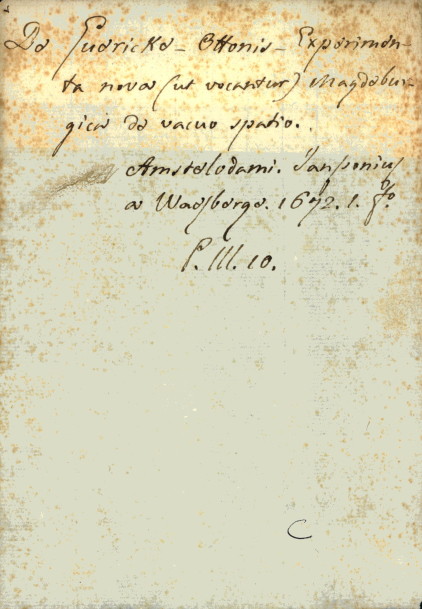 De Guericke - Ottonis - Experimen-
ta nova (ut vocantur) Magdebur-
gica de vacuo spatio.
Amstelodami. Janssonius
a Waesberge. 1672. 1. fo.
P. III. 10.
C